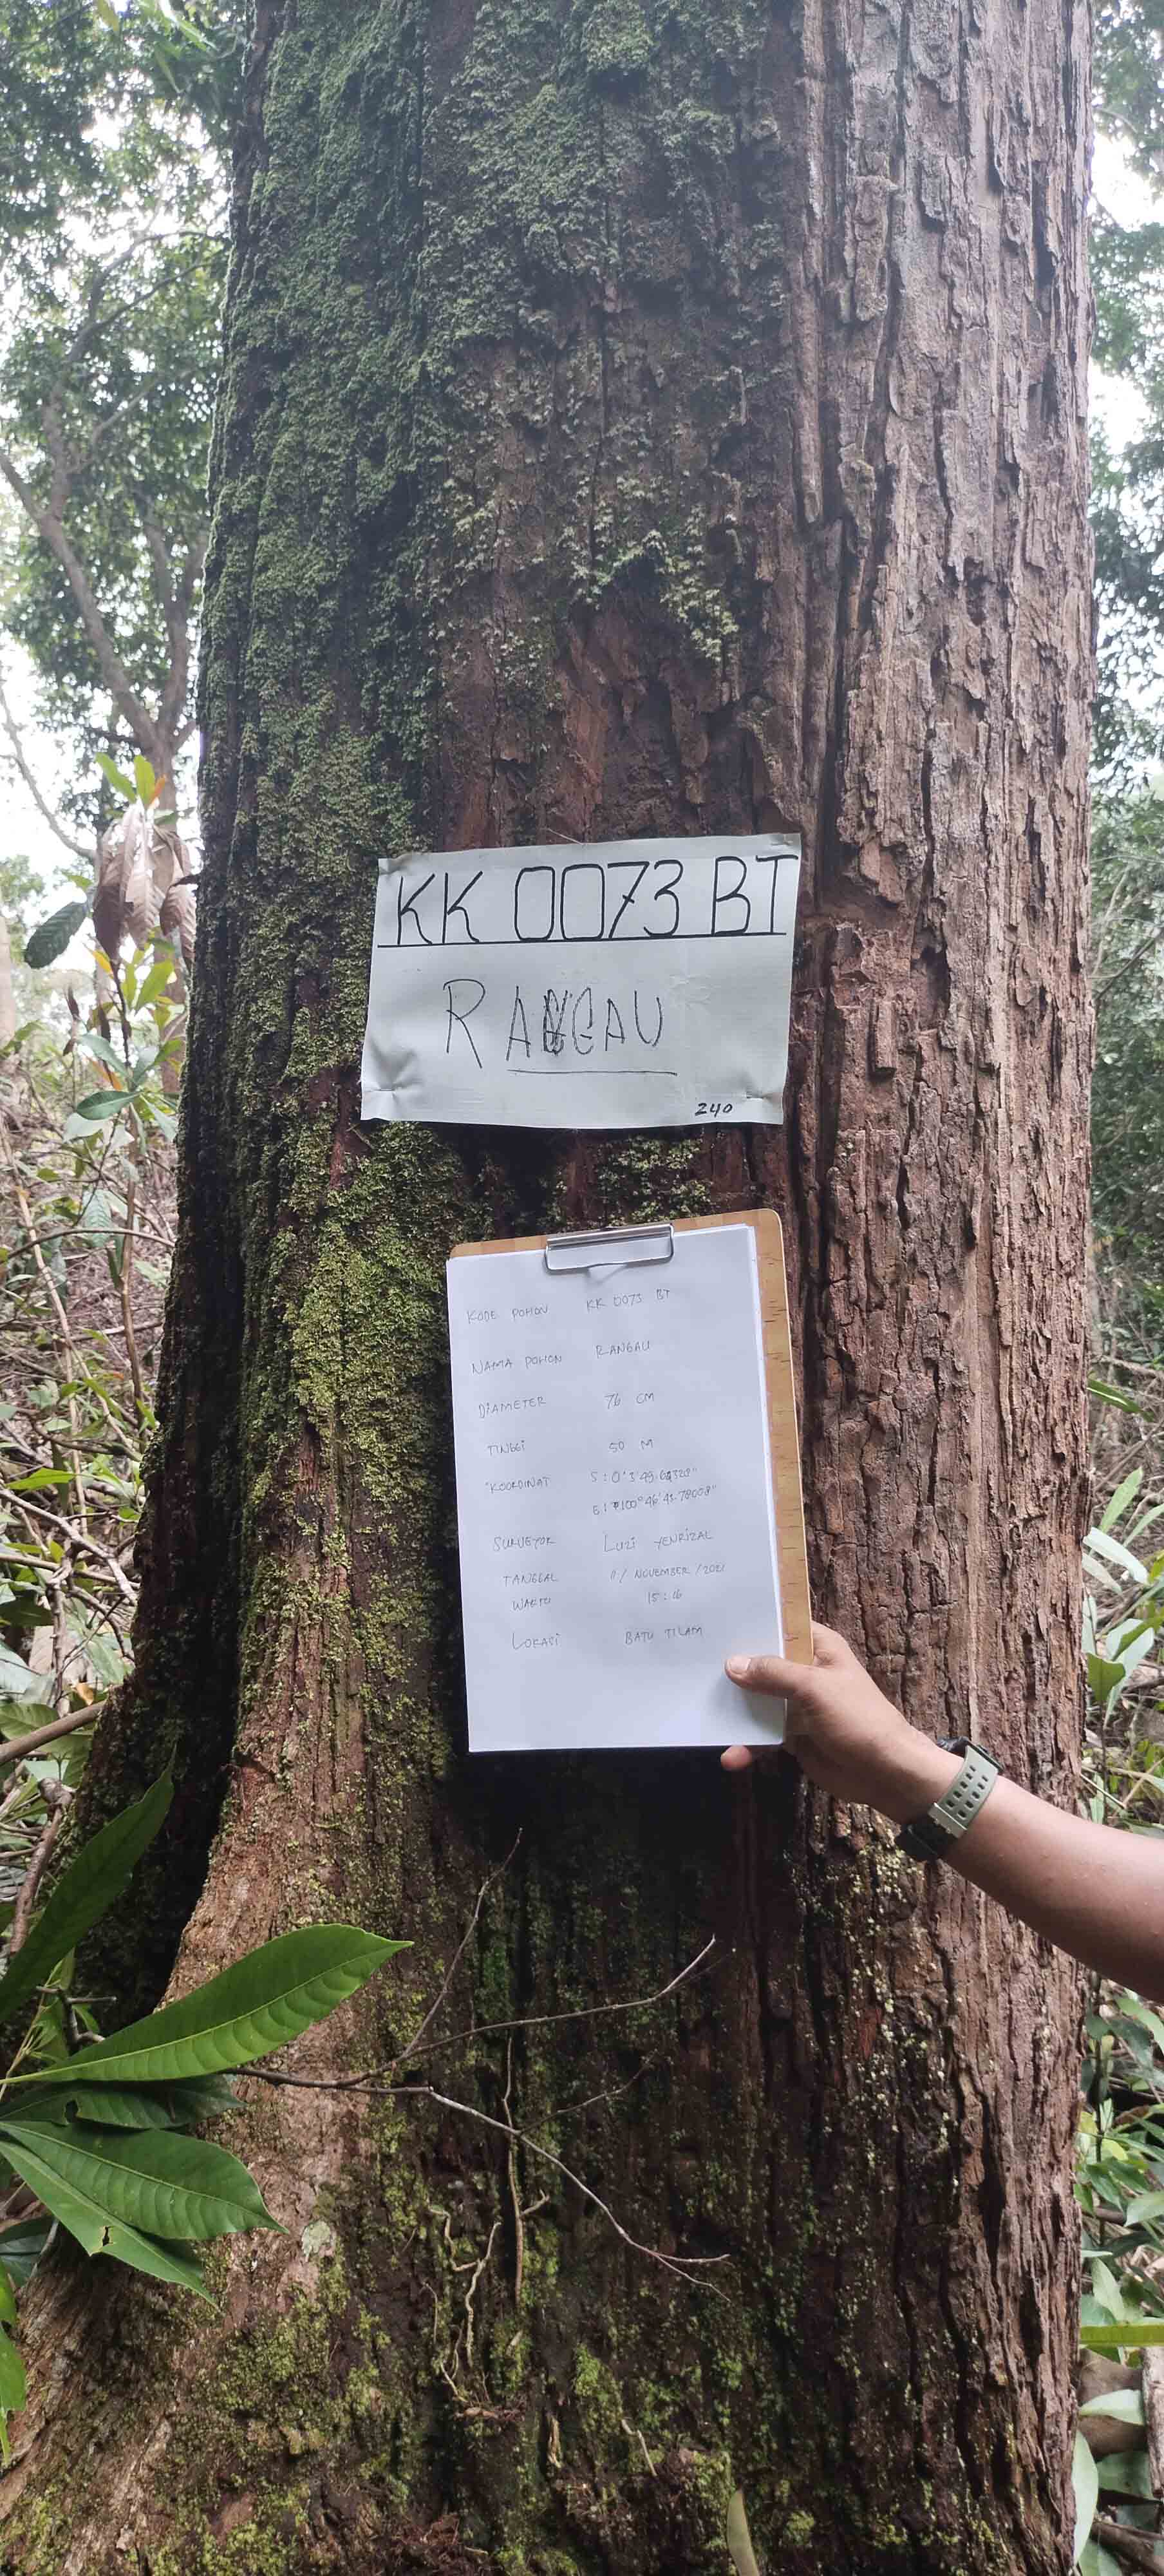 KK 0073 BT
RANGAU
240
KODE POHON KK 0073 BT
NAMA POHON RANGAU
DIAMETER 76 CM
TINGGI 50 M
KOORDINAT S : 0°3'49.64328"
E : 100°46'41.78008"
SURVEYOR LUZI YENRIZAL
TANGGAL / NOVEMBER / 2021
WAKTU 15 : 16
LOKASI BATU TILAM